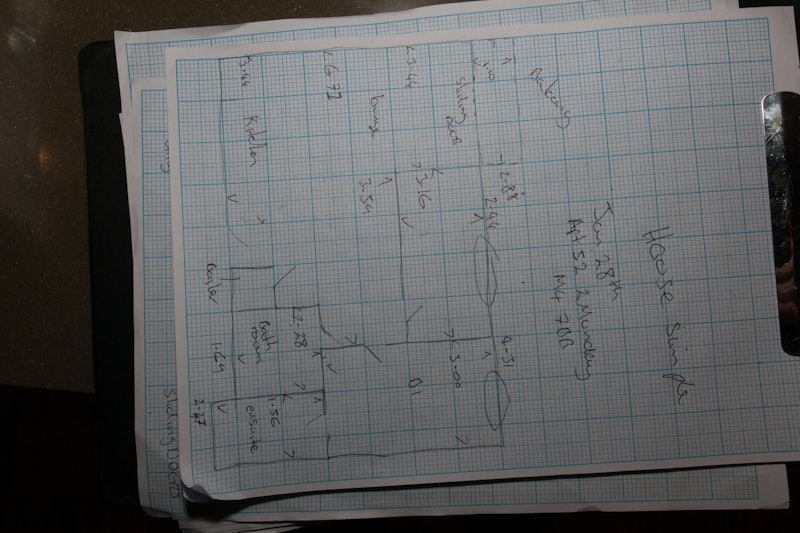 House Simple
Jan 28th
Apt 52 2 Munday
M4 7BB
Balcony
1.10
Sliding
door
2.88
2.44
4.31
3.44
3.16
3.00
lounge
3.54
B1
6.72
3.44
Kitchen
2.28
Bath
room
1.56
ensuite
Boiler
1.64
2.27
Sliding Doors